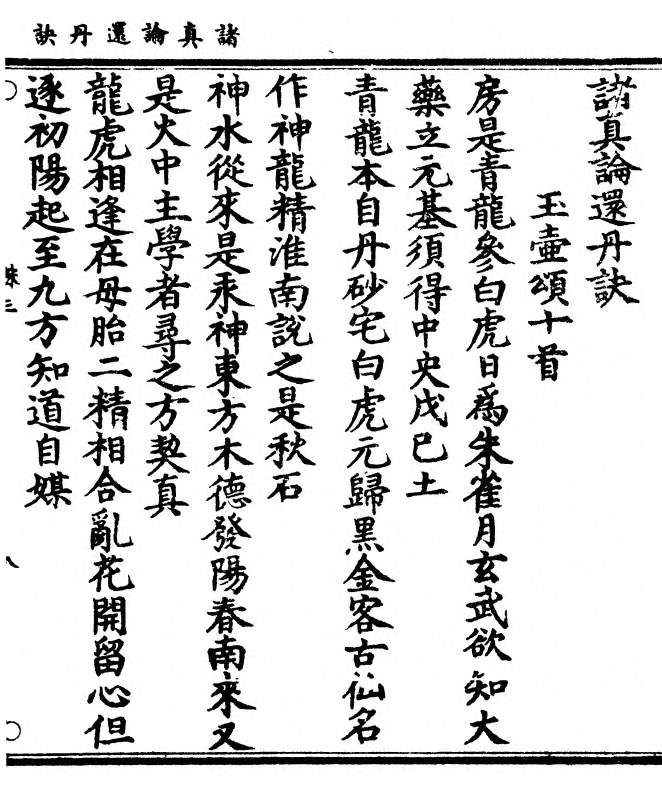 諸真論還丹訣
諸真論還丹訣
玉壺頌十首
房是青龍參白虎日為朱雀月玄武欲知大
藥立元基須得中央戊己土
青龍本自丹砂宅白虎元歸黑金客古仙名
作神龍精淮南說之是秋石
神水從來是汞神東方木德發陽春南來又
是火中主學者尋之方契真
龍虎相逢在母胎二精相合亂花開留心但
逐初陽起至九方知道自媒